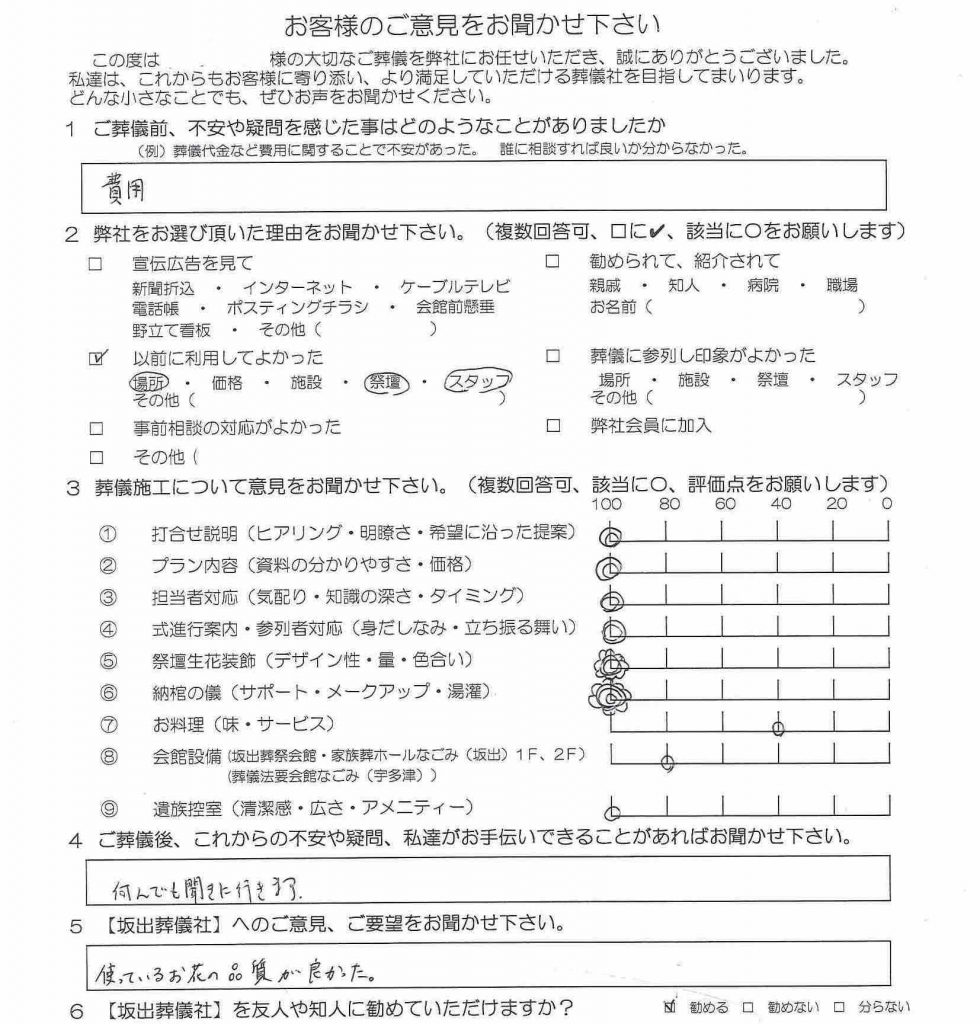 お客様のご意見をお聞かせ下さい
この度は 様の大切なご葬儀を弊社にお任せいただき、誠にありがとうございました。
私達は、これからもお客様に寄り添い、より満足していただける葬儀社を目指してまいります。
どんな小さなことでも、ぜひお声をお聞かせください。
1 ご葬儀前、不安や疑問を感じた事はどのようなことがありましたか
（例）葬儀代金など費用に関することで不安があった。 誰に相談すれば良いか分からなかった。
費用
2 弊社をお選び頂いた理由をお聞かせ下さい。（複数回答可、□に✔、該当に○をお願いします）
□ 宣伝広告を見て
新聞折込 ・ インターネット ・ ケーブルテレビ
電話帳 ・ ポスティングチラシ ・ 会館前懸垂
野立て看板 ・ その他（ ）
□ 勧められて、紹介されて
親戚 ・ 知人 ・ 病院 ・ 職場
お名前（ ）
☑ 以前に利用してよかった
場所 ・ 価格 ・ 施設 ・ 祭壇 ・ スタッフ
その他（ ）
□ 葬儀に参列し印象がよかった
場所 ・ 施設 ・ 祭壇 ・ スタッフ
その他（ ）
□ 事前相談の対応がよかった
□ 弊社会員に加入
□ その他（
3 葬儀施工について意見をお聞かせ下さい。（複数回答可、該当に○、評価点をお願いします）
100 80 60 40 20 0
① 打合せ説明（ヒアリング・明瞭さ・希望に沿った提案）
② プラン内容（資料の分かりやすさ・価格）
③ 担当者対応（気配り・知識の深さ・タイミング）
④ 式進行案内・参列者対応（身だしなみ・立ち振る舞い）
⑤ 祭壇生花装飾（デザイン性・量・色合い）
⑥ 納棺の儀（サポート・メークアップ・湯灌）
⑦ お料理（味・サービス）
⑧ 会館設備（坂出葬祭会館・家族葬ホールなごみ（坂出）1F、2F）
（葬儀法要会館なごみ（宇多津））
⑨ 遺族控室（清潔感・広さ・アメニティー）
4 ご葬儀後、これからの不安や疑問、私達がお手伝いできることがあればお聞かせ下さい。
何んでも聞きに行きます。
5 【坂出葬儀社】へのご意見、ご要望をお聞かせ下さい。
使っているお花の品質が良かった。
6 【坂出葬儀社】を友人や知人に勧めていただけますか？ ☑ 勧める □ 勧めない □ 分らない